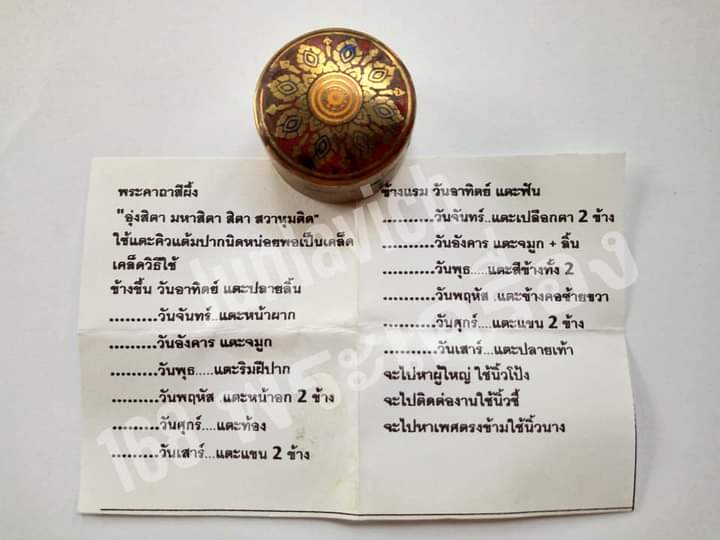 พระคาถาสีผึ้ง
"อุ่งสิตา มหาสิตา สิตา สวาหุมติด"
ใช้แตะคิวแต้มปากนิดหน่อยพอเป็นเคล็ด
เคล็ดวิธีใช้
ข้างขึ้น วันอาทิตย์ แตะปลายลิ้น
.........วันจันทร์..แตะหน้าผาก
.........วันอังคาร แตะจมูก
.........วันพุธ.....แตะริมฝีปาก
.........วันพฤหัส .แตะหน้าอก 2 ข้าง
.........วันศุกร์....แตะท้อง
.........วันเสาร์...แตะแขน 2 ข้าง
ข้างแรม วันอาทิตย์ แตะฟัน
..........วันจันทร์..แตะเปลือกตา 2 ข้าง
..........วันอังคาร แตะจมูก + ลิ้น
..........วันพุธ.....แตะสีข้างทั้ง 2
..........วันพฤหัส .แตะข้างคอซ้ายขวา
..........วันศุกร์....แตะแขน 2 ข้าง
..........วันเสาร์...แตะปลายเท้า
จะไปหาผู้ใหญ่ ใช้นิ้วโป้ง
จะไปติดต่องานใช้นิ้วชี้
จะไปหาเพศตรงข้ามใช้นิ้วนาง
Juntavich
168 พระเครื่อง